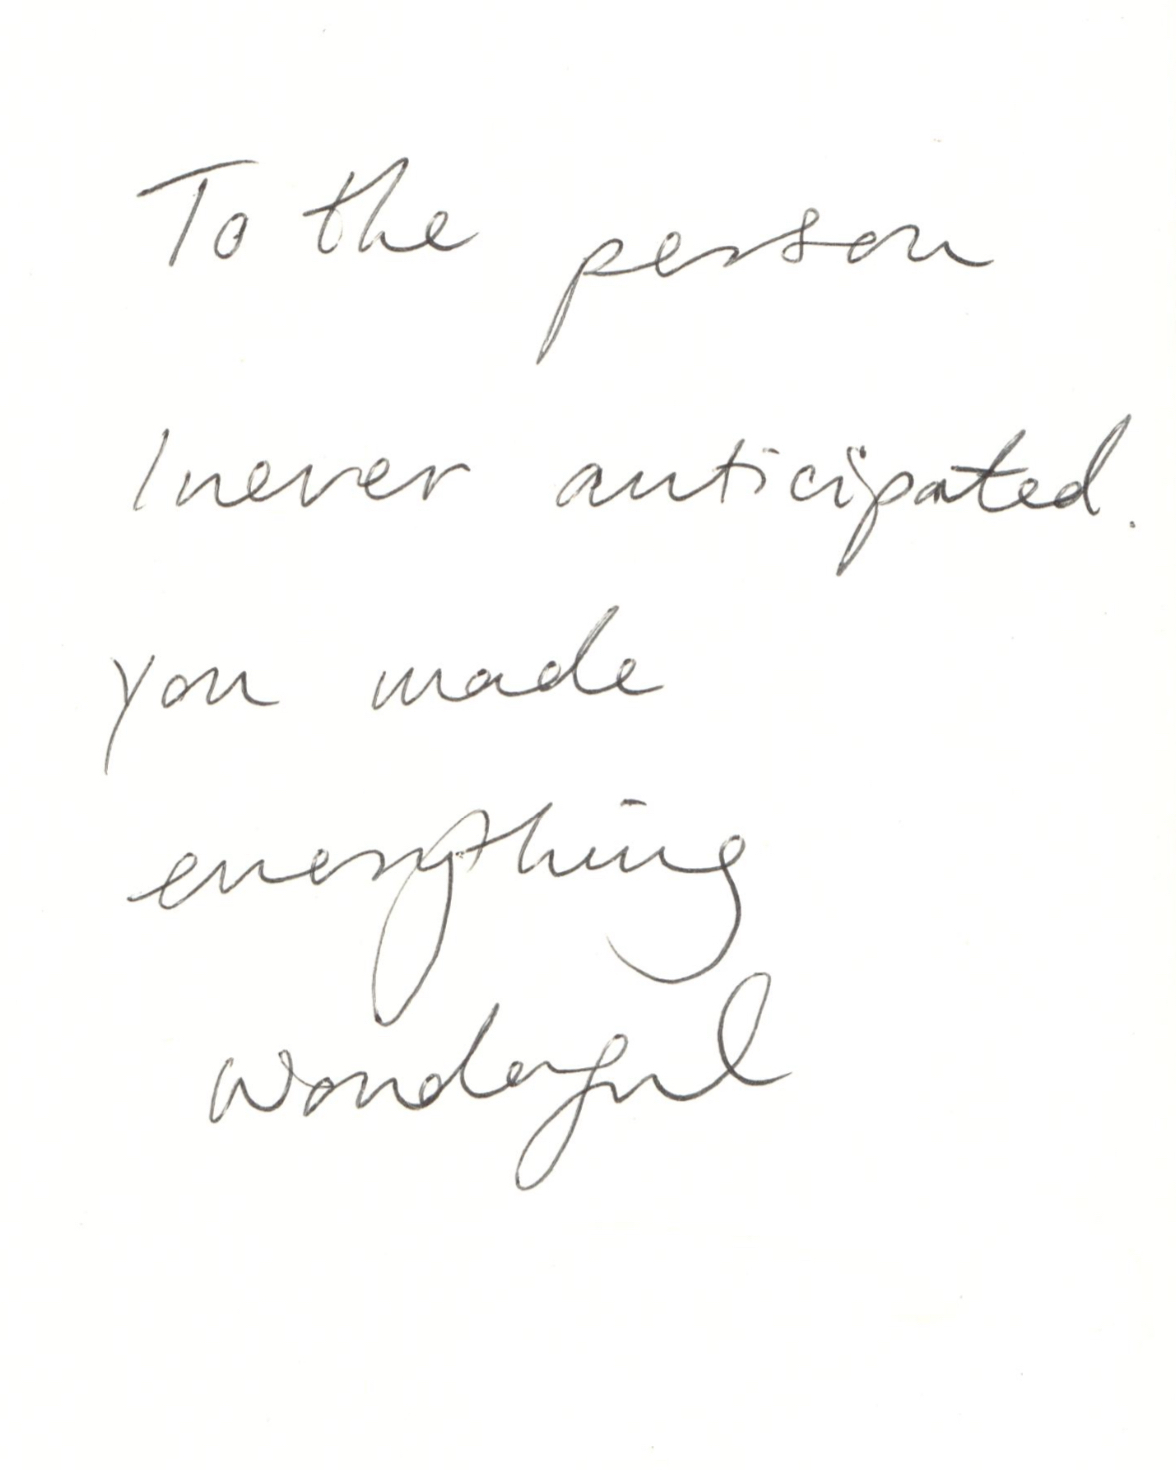 To the person
I never anticipated.
you made
everything
wonderful